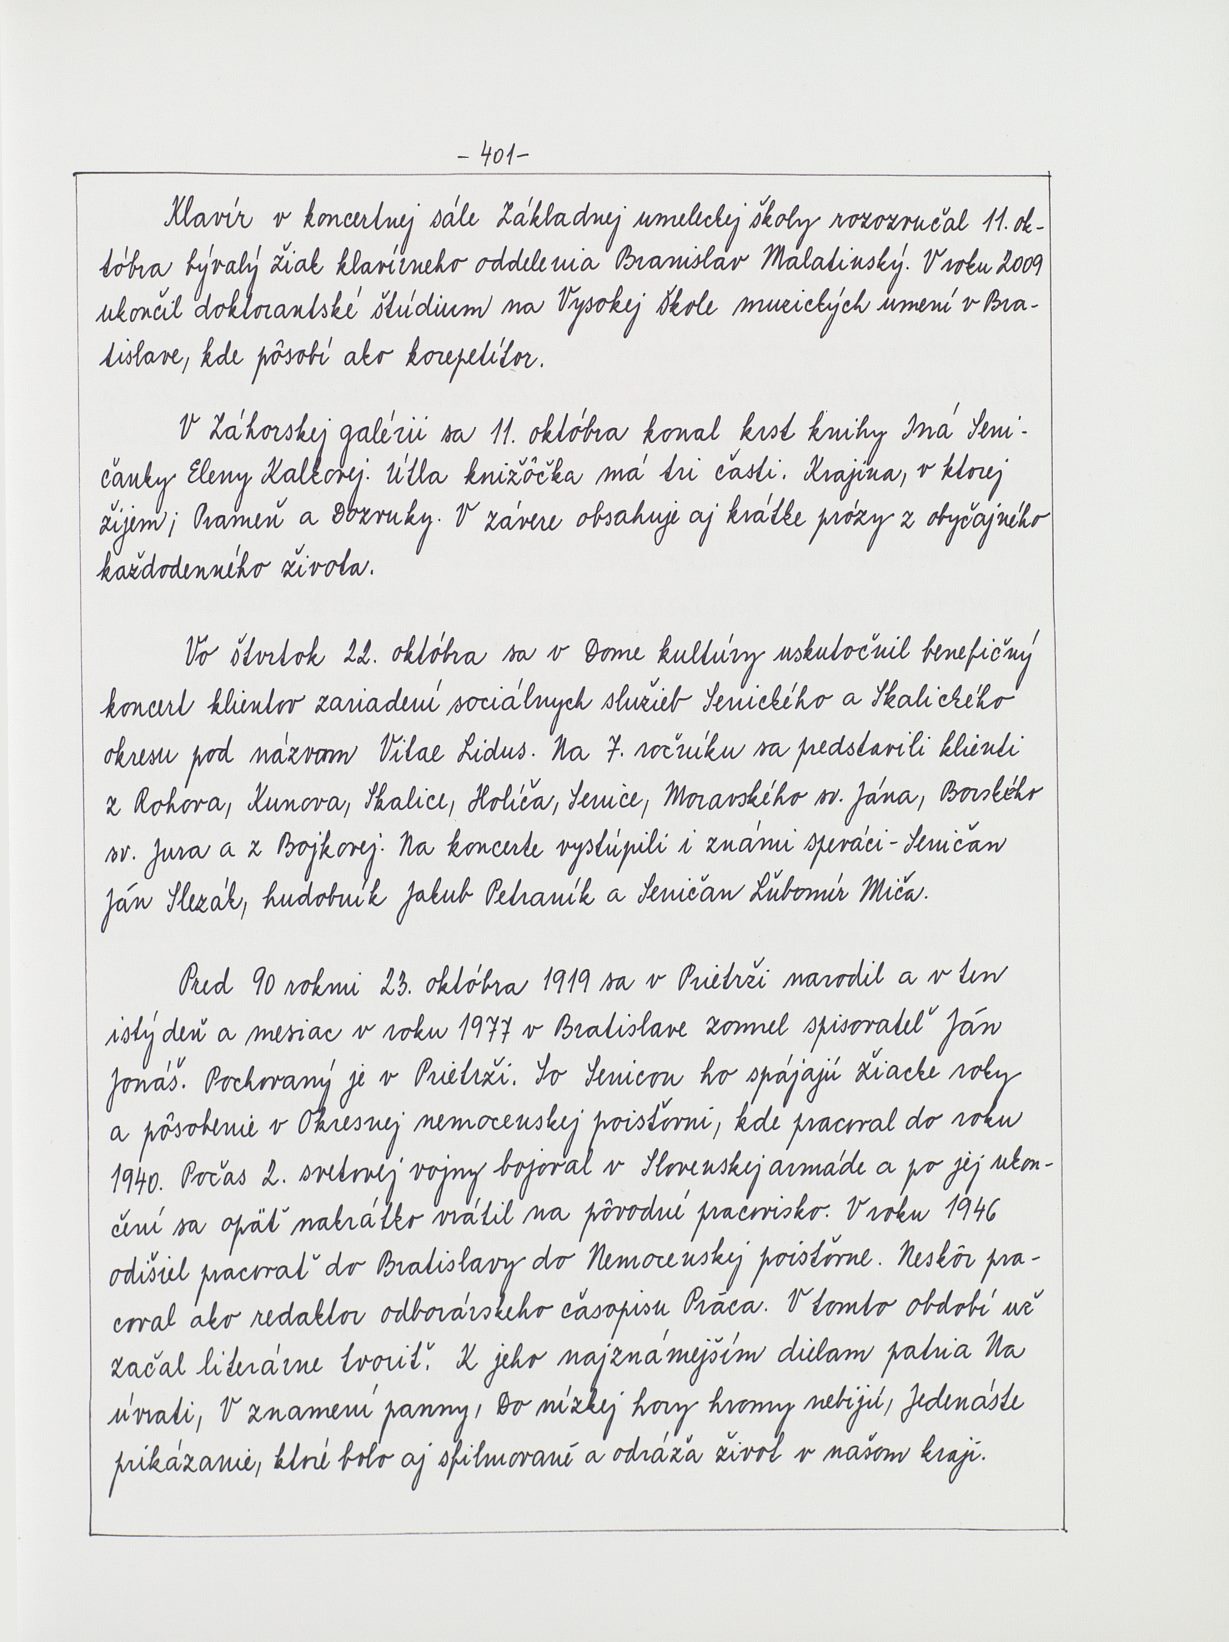 - 401 -
Klavír v koncertnej sále Základnej umeleckej školy rozozvučal 11. ok-
tóbra bývalý žiak klavírneho oddelenia Branislav Malatinský. V roku 2009
ukončil doktorantské štúdium na Vysokej škole muzických umení v Bra-
tislave, kde pôsobí ako korepetítor.
V Záhorskej galérii sa 11. októbra konal krst knihy Iná Seni-
čanky Eleny Kalkovej. Útla knižôčka má tri časti. Krajina, v ktorej
žijem; Prameň a Dozvuky. V závere obsahuje aj krátke prózy z obyčajného
každodenného života.
Vo štvrtok 22. októbra sa v Dome kultúry uskutočnil benefičný
koncert klientov zariadení sociálnych služieb Senického a Skalického
okresu pod názvom Vitae Lidus. Na 7. ročníku sa predstavili klienti
z Rohova, Kunova, Skalice, Holíča, Senice, Moravského sv. Jána, Borského
sv. Jura a z Bojkovej. Na koncerte vystúpili i známi speváci - Seničan
Ján Slezák, hudobník Jakub Petraník a Seničan Ľubomír Miča.
Pred 90 rokmi 23. októbra 1919 sa v Prietrži narodil a v ten
istý deň a mesiac v roku 1977 v Bratislave zomrel spisovateľ Ján
Jonáš. Pochovaný je v Prietrži. So Senicou ho spájajú žiacke roky
a pôsobenie v Okresnej nemocenskej poisťovni, kde pracoval do roku
1940. Počas 2. svetovej vojny bojoval v Slovenskej armáde a po jej ukon-
čení sa opäť nakrátko vrátil na pôvodné pracovisko. V roku 1946
odišiel pracovať do Bratislavy do Nemocenskej poisťovne. Neskôr pra-
coval ako redaktor odborárskeho časopisu Práca. V tomto období už
začal literárne tvoriť. K jeho najznámejším dielam patria Na
úvrati, V znamení panny, Do nízkej hory hromy nebijú, Jedenáste
prikázanie, ktoré bolo aj sfilmované a odráža život v našom kraji.